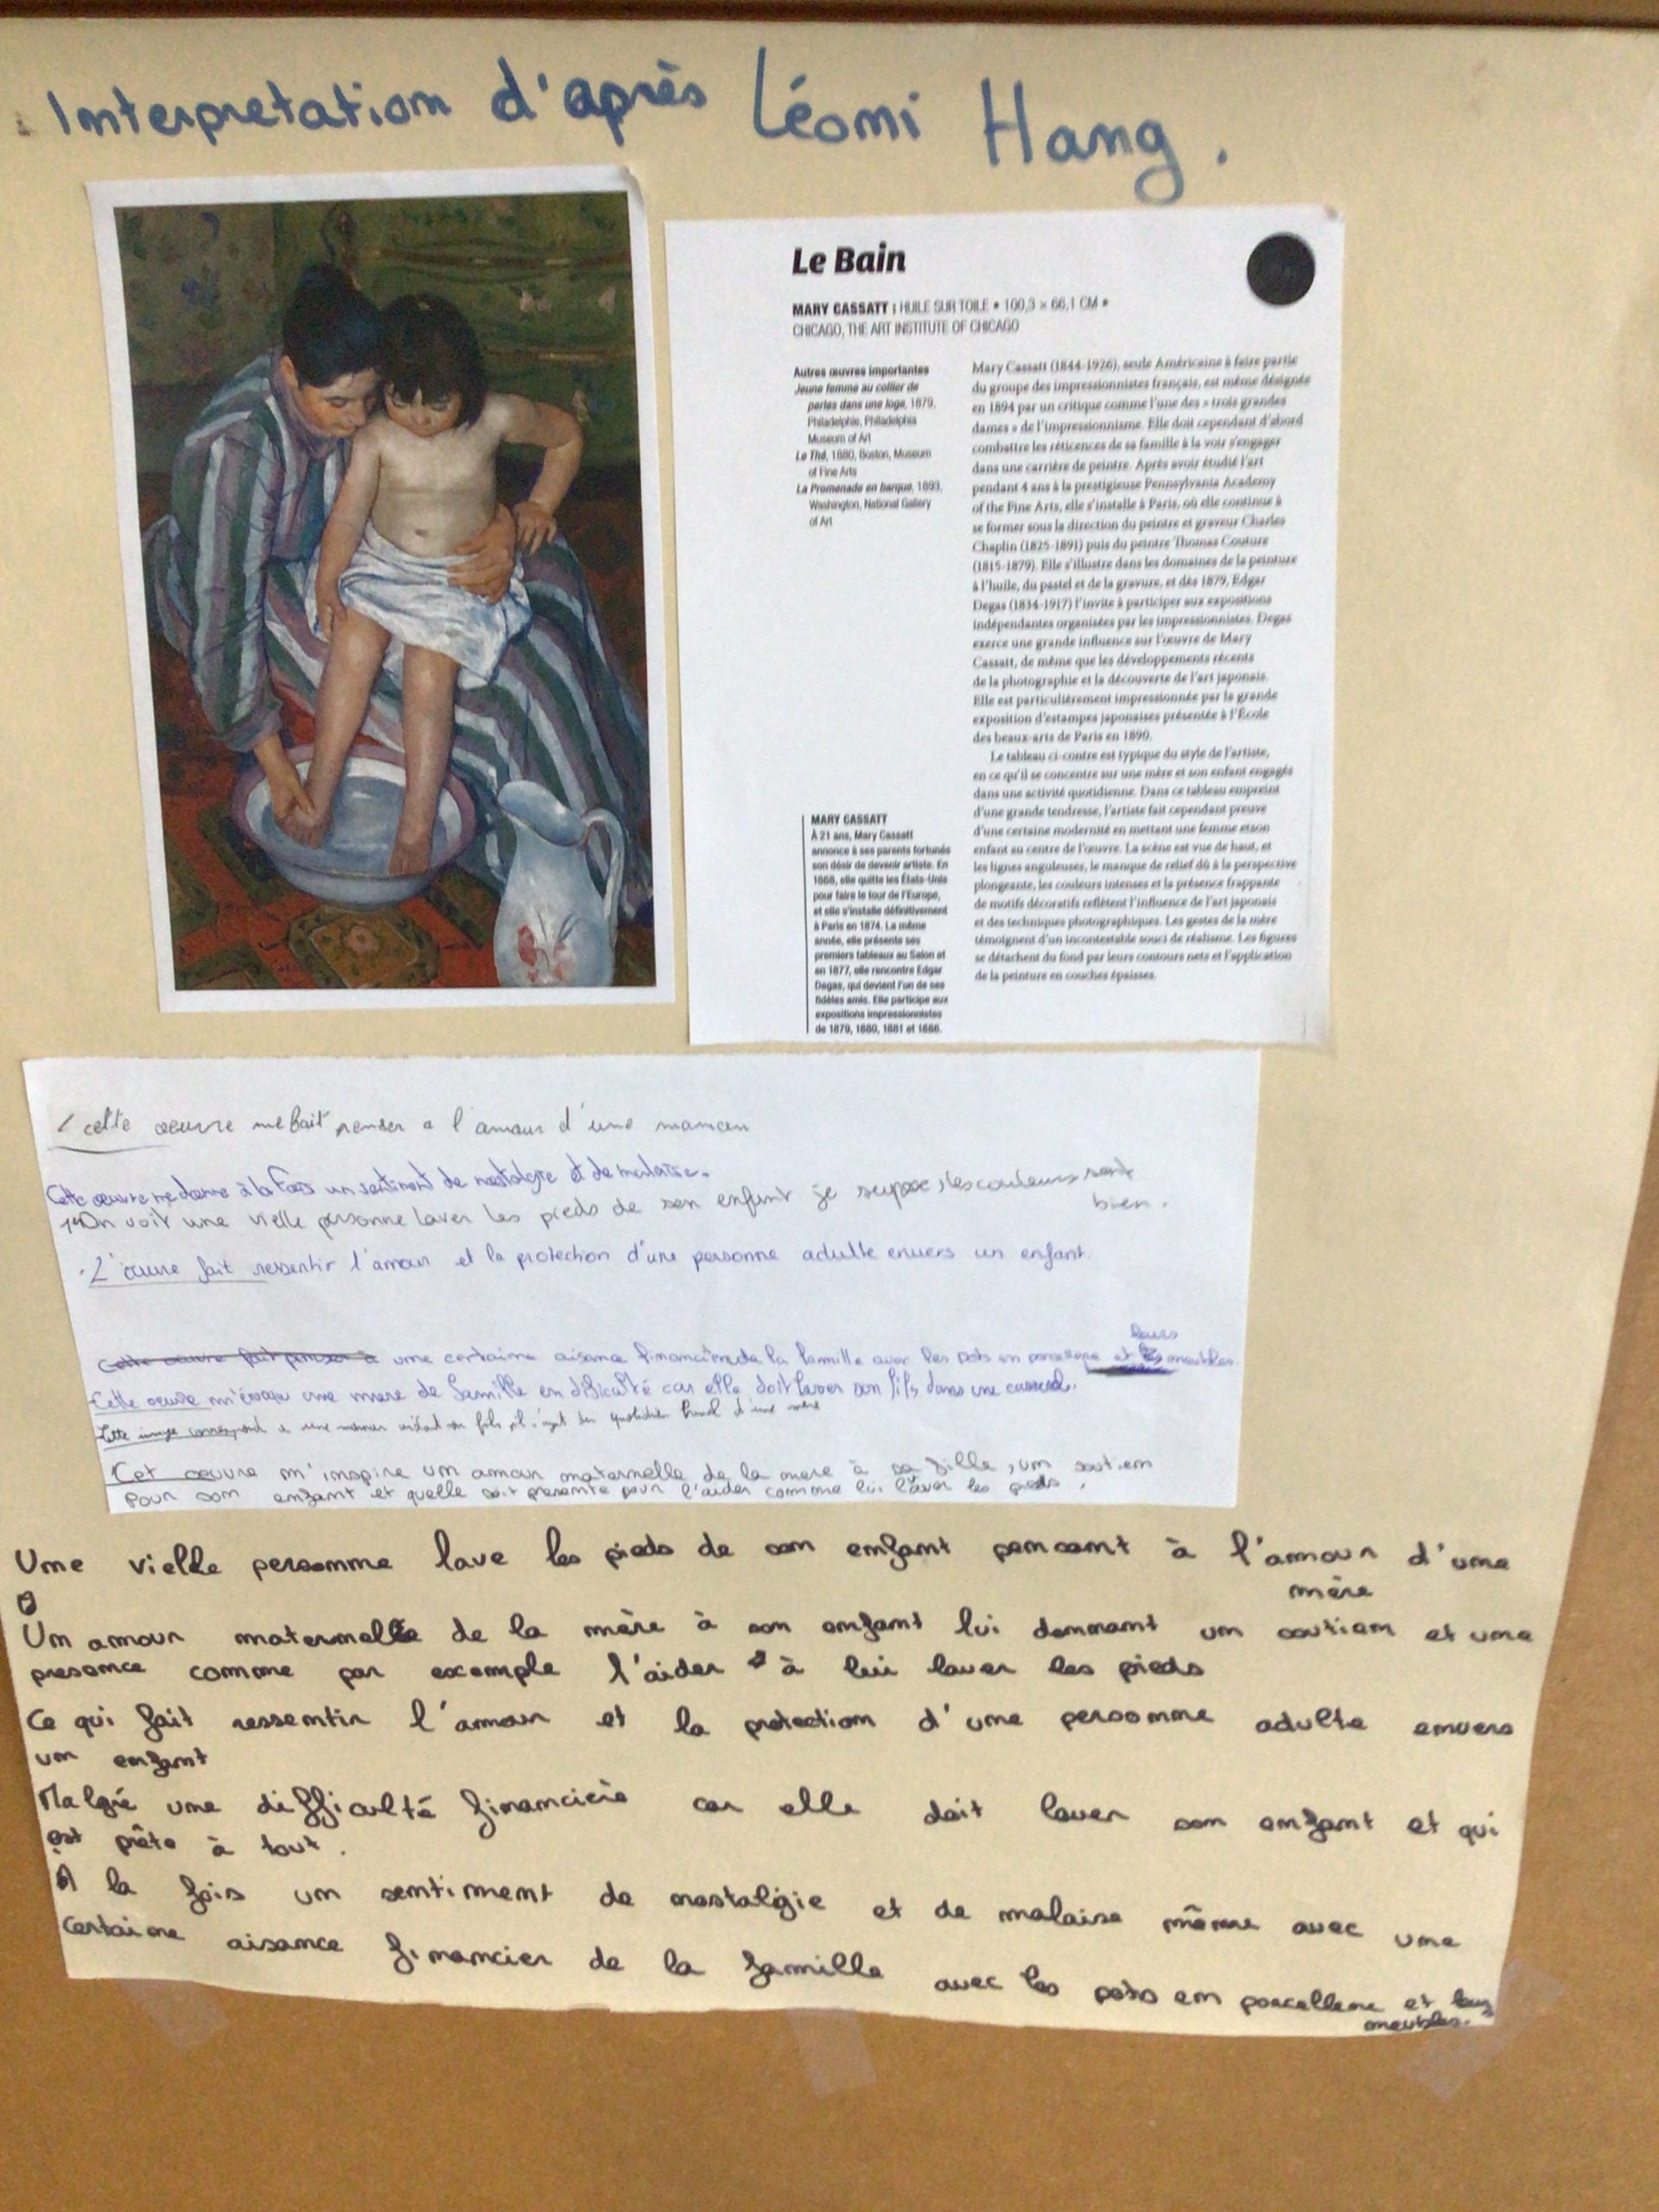 Interpretation d'après Léomi Hang.
Le Bain
MARY CASSATT | HUILE SUR TOILE • 100,3 × 66,1 CM •
CHICAGO, THE ART INSTITUTE OF CHICAGO
Autres œuvres importantes
Jeune femme au collier de
perles dans une loge, 1879,
Philadelphie, Philadelphia
Museum of Art
Le Thé, 1880, Boston, Museum
of Fine Arts
La Promenade en barque, 1893,
Washington, National Gallery
of Art
Mary Cassatt (1844-1926), seule Américaine à faire partie
du groupe des impressionnistes français, est même désignée
en 1894 par un critique comme l'une des « trois grandes
dames » de l'impressionnisme. Elle doit cependant d'abord
combattre les réticences de sa famille à la voir s'engager
dans une carrière de peintre. Après avoir étudié l'art
pendant 4 ans à la prestigieuse Pennsylvania Academy
of the Fine Arts, elle s'installe à Paris, où elle continue à
se former sous la direction du peintre et graveur Charles
Chaplin (1825-1891) puis du peintre Thomas Couture
(1815-1879). Elle s'illustre dans les domaines de la peinture
à l'huile, du pastel et de la gravure, et dès 1879, Edgar
Degas (1834-1917) l'invite à participer aux expositions
indépendantes organisées par les impressionnistes. Degas
exerce une grande influence sur l'œuvre de Mary
Cassatt, de même que les développements récents
de la photographie et la découverte de l'art japonais.
Elle est particulièrement impressionnée par la grande
exposition d'estampes japonaises présentée à l'École
des beaux-arts de Paris en 1890.
Le tableau ci-contre est typique du style de l'artiste,
en ce qu'il se concentre sur une mère et son enfant engagés
dans une activité quotidienne. Dans ce tableau empreint
d'une grande tendresse, l'artiste fait cependant preuve
d'une certaine modernité en mettant une femme etson
enfant au centre de l'œuvre. La scène est vue de haut, et
les lignes anguleuses, le manque de relief dû à la perspective
plongeante, les couleurs intenses et la présence frappante
de motifs décoratifs reflètent l'influence de l'art japonais
et des techniques photographiques. Les gestes de la mère
témoignent d'un incontestable souci de réalisme. Les figures
se détachent du fond par leurs contours nets et l'application
de la peinture en couches épaisses.
MARY CASSATT
À 21 ans, Mary Cassatt
annonce à ses parents fortunés
son désir de devenir artiste. En
1868, elle quitte les États-Unis
pour faire le tour de l'Europe,
et elle s'installe définitivement
à Paris en 1874. La même
année, elle présente ses
premiers tableaux au Salon et
en 1877, elle rencontre Edgar
Degas, qui devient l'un de ses
fidèles amis. Elle participe aux
expositions impressionnistes
de 1879, 1880, 1881 et 1886.
cette oeuvre me fait penser a l'amour d'une maman
Cette oeuvre me donne à la fois un sentiment de nostalgie et de malaise.
On voit une vielle personne laver les pieds de son enfant je suppose, les couleurs sont
bien.
L'œuvre fait ressentir l'amour et la protection d'une personne adulte envers un enfant.
leurs
Cette oeuvre fait penser à une certaine aisance financière de la famille avec les pots en porcelaine et meubles.
Cette oeuvre m'évoque une mere de famille en dificulté car elle doit laver son fils dans une
Cette image correspond a une maman son fils il s'agit du quotidien d'une mère
Cet oeuvre m'inspire un amour maternelle de la mere à sa fille, un soutien
pour son enfant et quelle soit presente pour l'aider comme lui laver les pieds.
Une vielle personne lave les pieds de son enfant pensant à l'amour d'une
mère
Un amour maternelle de la mère à son enfant lui donnant un soutien et une
presence comme par exemple l'aider à lui laver les pieds
Ce qui fait ressentir l'amour et la protection d'une personne adulte envers
un enfant
Malgré une difficulté financière car elle doit laver son enfant et qui
est prête à tout.
A la fois un sentiment de nostalgie et de malaise même avec une
certaine aisance financier de la famille avec les pots en porcellene et leurs
meubles.